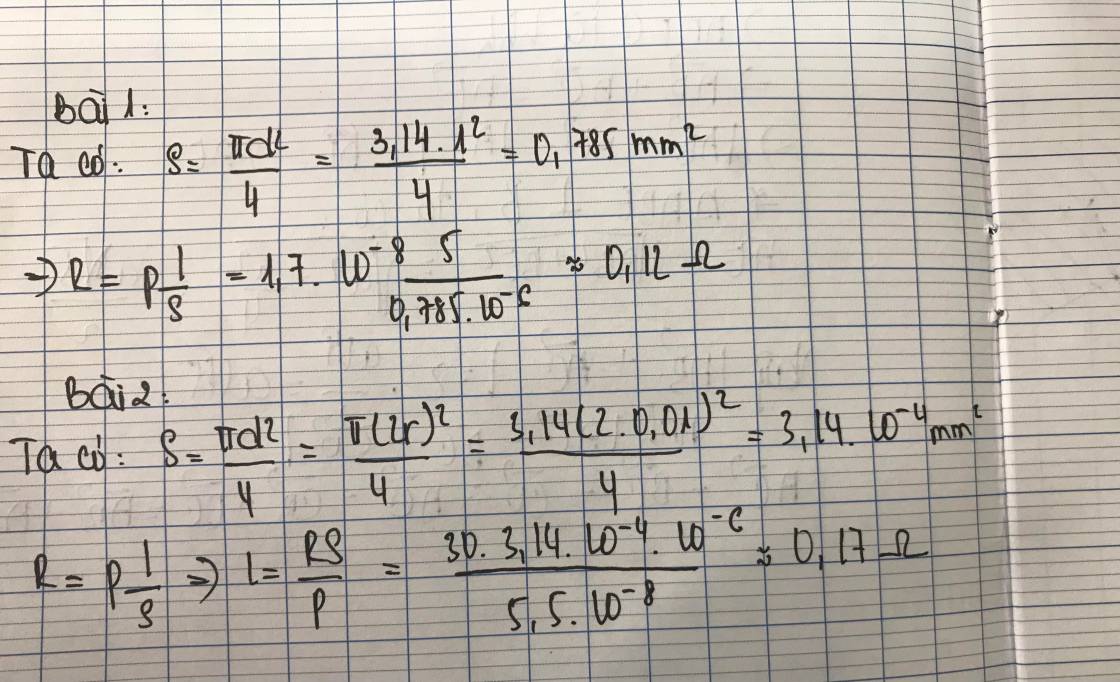 Bài 1:
Ta có: S = πd²/4 = 3,14.1²/4 = 0,785 mm²
=> R = ρ l/S = 1,7. 10⁻⁸ 5/0,785.10⁻⁶ ≈ 0,12 Ω
Bài 2:
Ta có: S = πd²/4 = π(2r)²/4 = 3,14(2.0,01)²/4 = 3,14. 10⁻⁴ mm²
R = ρ l/S => l = RS/ρ = 30. 3,14. 10⁻⁴. 10⁻⁶/5,5. 10⁻⁸ ≈ 0,17 Ω